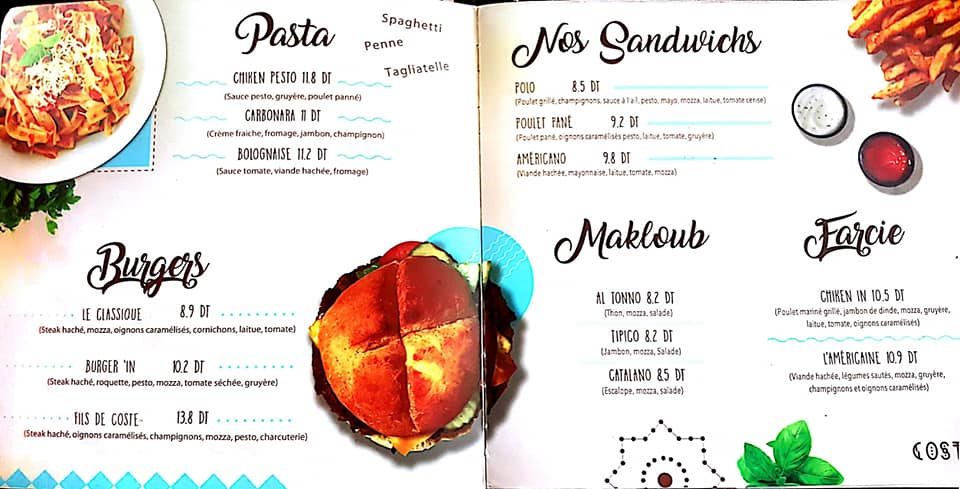 Pasta
Spaghetti
Penne
Tagliatelle
CHIKEN PESTO 11.8 DT
(Sauce pesto, gruyère, poulet panné)
CARBONARA 11 DT
(Crème fraiche, fromage, jambon, champignon)
BOLOGNAISE 11.2 DT
(Sauce tomate, viande hachée, fromage)
Burgers
LE CLASSIQUE 8.9 DT
(Steak haché, mozza, oignons caramélisés, cornichons, laitue, tomate)
BURGER 'IN 10.2 DT
(Steak haché, roquette, pesto, mozza, tomate séchée, gruyère)
FILS DE COSTE- 13.8 DT
(Steak haché, oignons caramélisés, champignons, mozza, pesto, charcuterie)
Nos Sandwichs
POLO 8.5 DT
(Poulet grillé, champignons, sauce à l'ail, pesto, mayo, mozza, laitue, tomate cerise)
POULET PANÉ 9.2 DT
(Poulet pané, oignons caramélisés pesto, laitue, tomate, gruyère)
AMÉRICANO 9.8 DT
(Viande hachée, mayonnaise, laitue, tomate, mozza)
Makloub
AL TONNO 8.2 DT
(Thon, mozza, salade)
TIPICO 8.2 DT
(Jambon, mozza, Salade)
CATALANO 8.5 DT
(Escalope, mozza, salade)
Farcie
CHIKEN IN 10.5 DT
(Poulet mariné grillé, jambon de dinde, mozza, gruyère,
laitue, tomate, oignons caramélisés)
L'AMÉRICAINE 10.9 DT
(Viande hachée, légumes sautés, mozza, gruyère,
champignons et oignons caramélisés)
COST